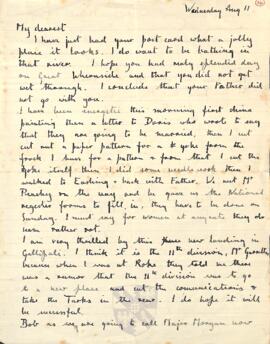 Wednesday Aug 11
My dearest
I have just had your post card what a jolly
place it looks. I do want to be bathing in
that river. I hope you had a splendid day
on Great Whernside and that you did not get
wet through. I conclude that your Father did
not go with you.
I have been energetic this morning first china
painting then a letter to Doris who wrote to say
that they are going to be married, then I cut
out a paper pattern for a yoke from the
frock I have for a pattern & from that I cut the
yoke itself then I did some needlework then I
walked to with Father. We met Mr
on the way and he gave us the National
register forms to fill in, they have to be done on
Sunday. I must say for women at any rate they do
seem rather rot.
I am very thrilled by this new landing in
Gallipoli. I think it is the 11th division, Mr
when I was at Roke they told me there
was a rumour that the 11th division was to go
to a new place and cut the communications &
take the Turks in the rear. I do hope it will
be successful.
Bob as we are going to call Major Morgan now